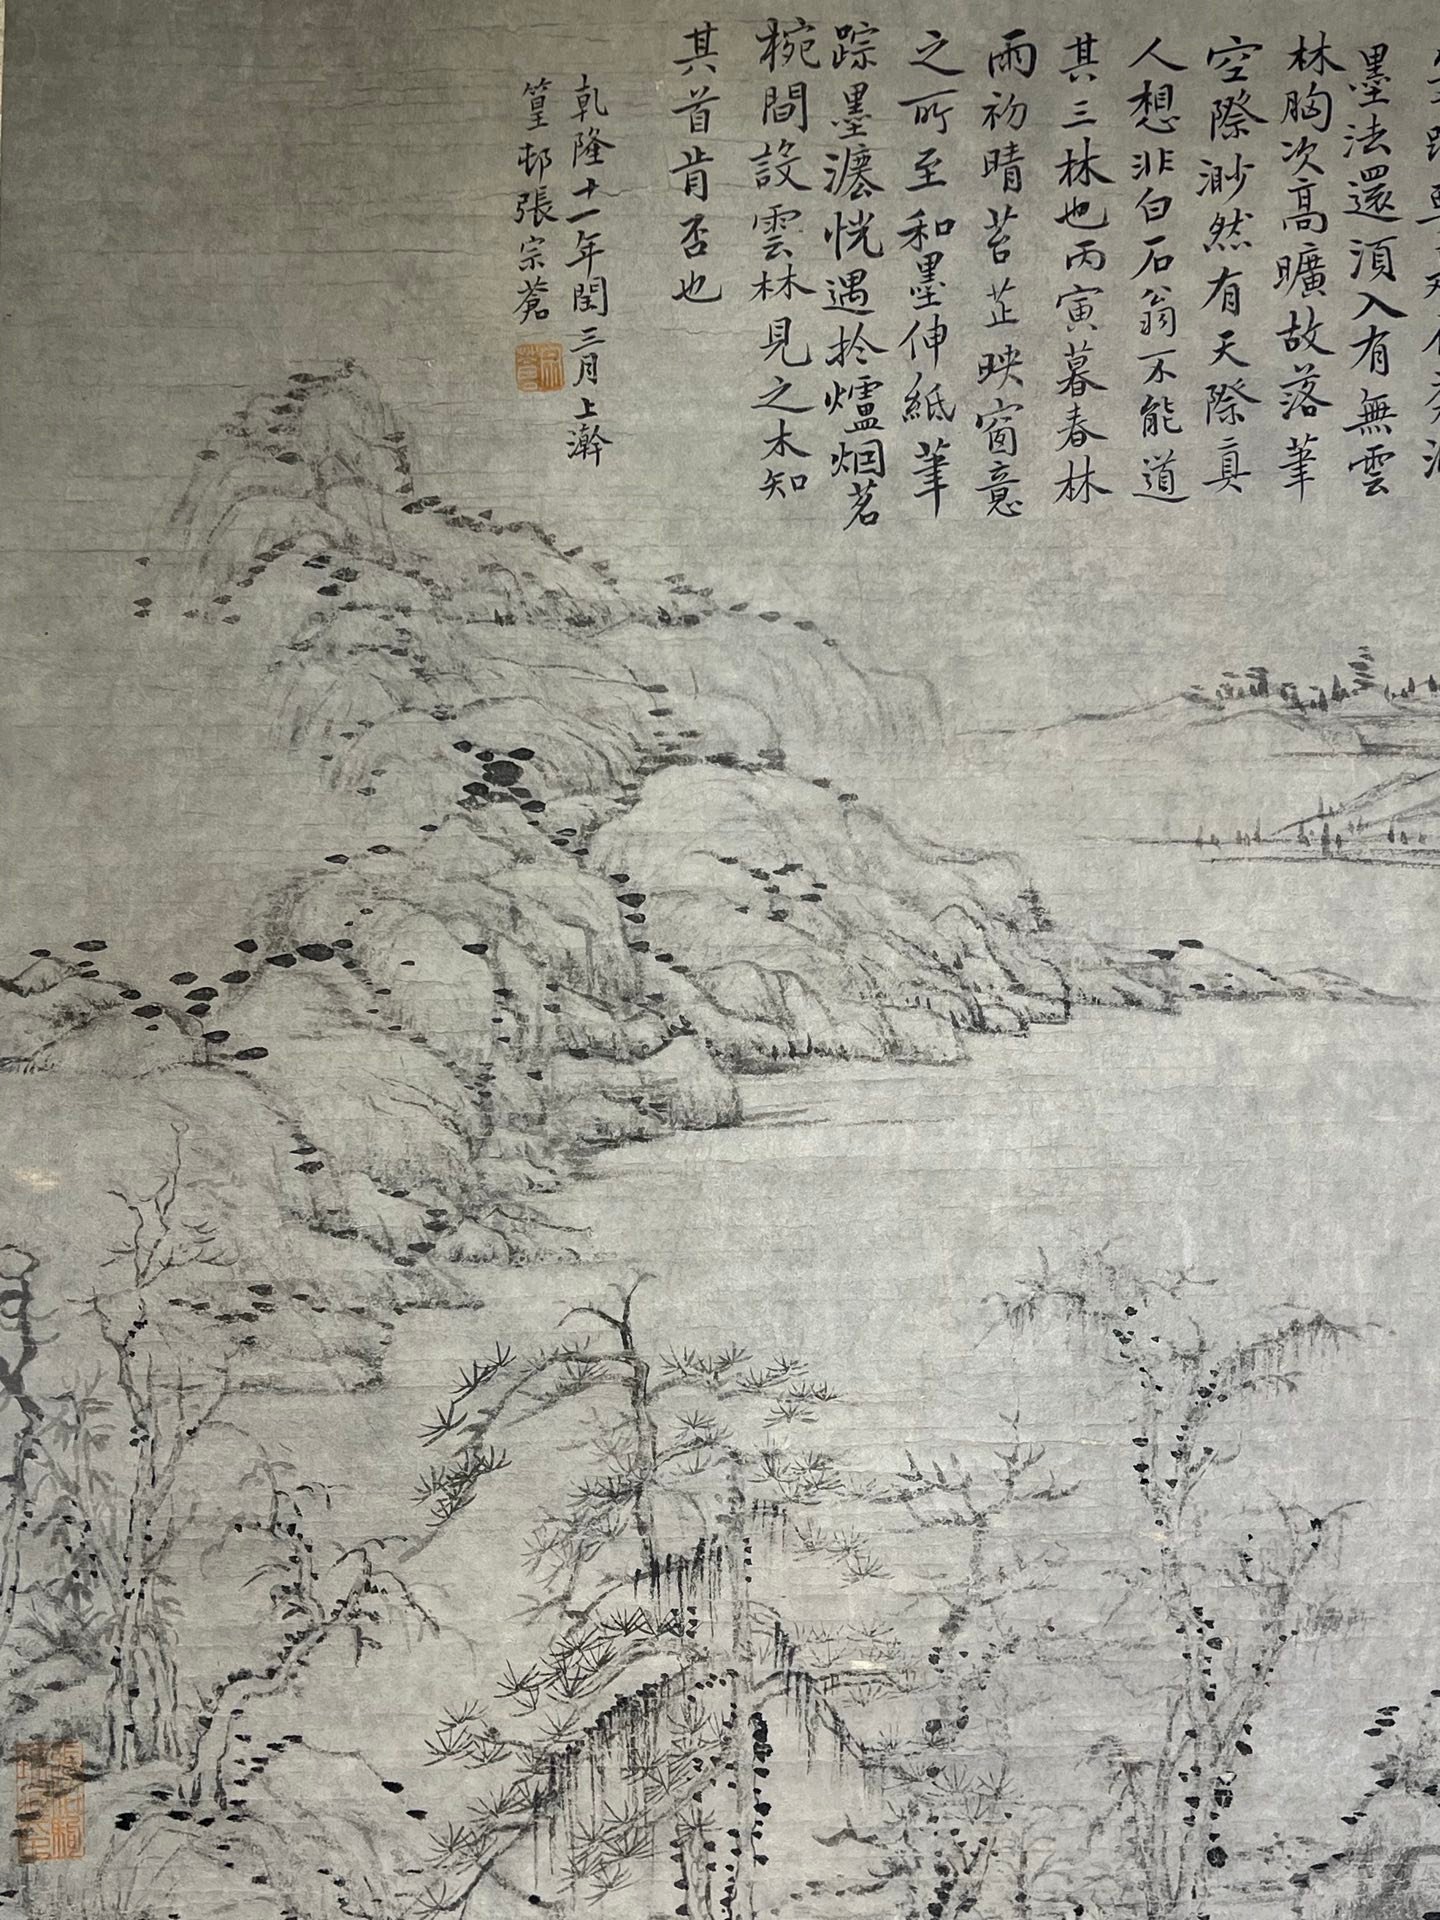 墨法還須入有無雲
林胸次高曠故落筆
空際渺然有天際真
人想非白石翁不能道
其三林也丙寅暮春林
雨初晴苔芷映窗意
之所至和墨伸紙筆
踪墨瀋恍遇於爐烟茗
椀間設雲林見之未知
其首肯否也
乾隆十一年閏三月上澣
篁邨張宗蒼
宗蒼